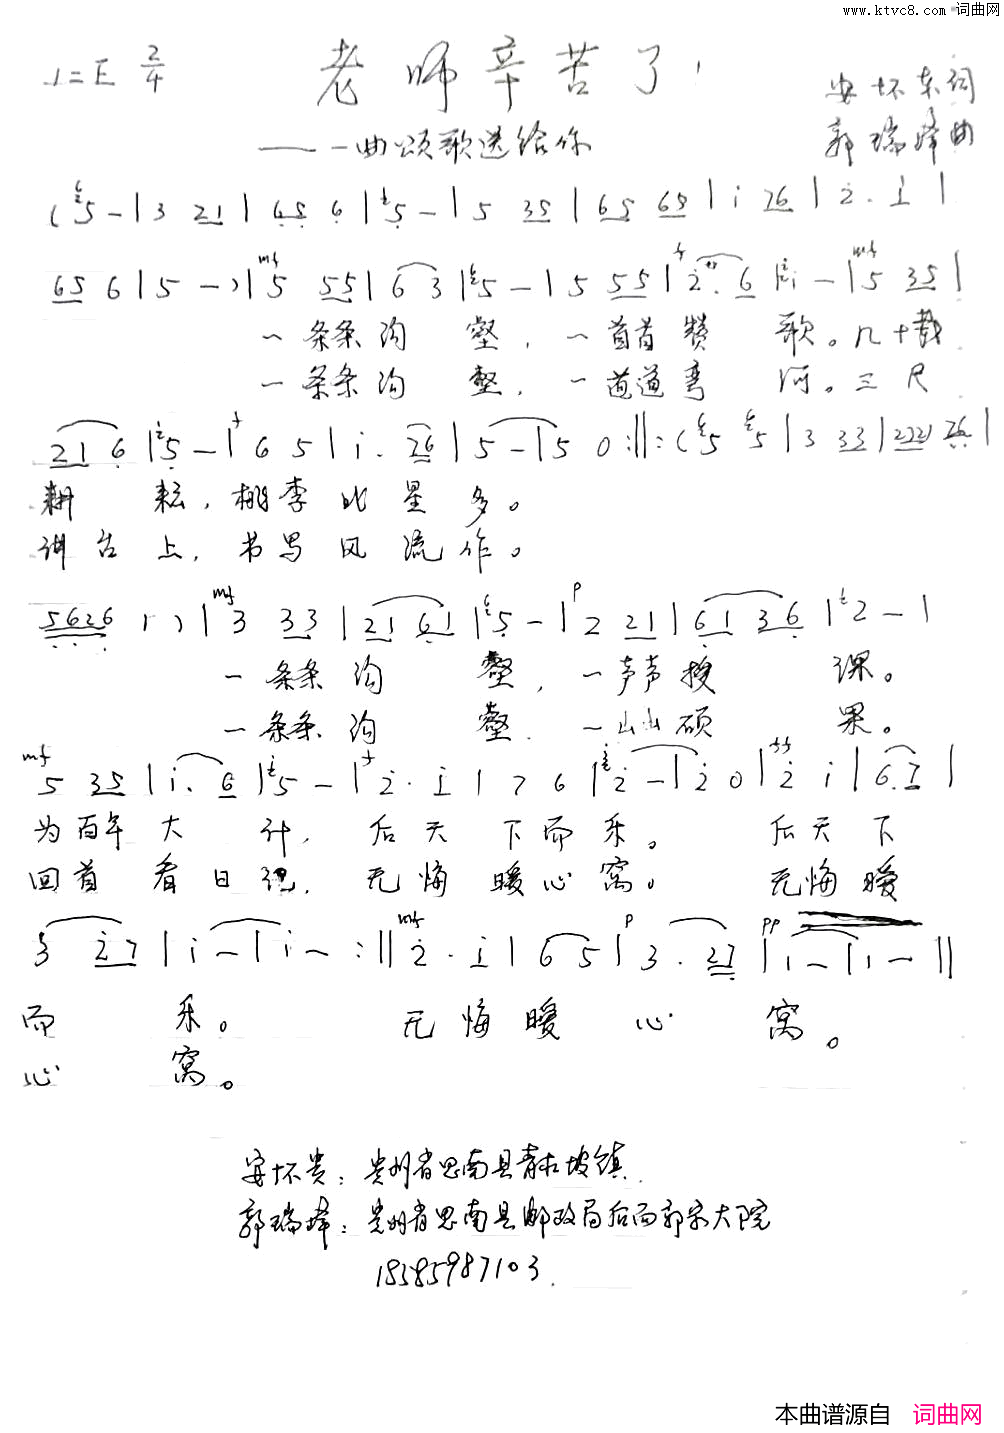 www.ktvc8.com 词曲网
1=E 2/4 老师辛苦了！
安怀东词
——一曲颂歌送给你
郭瑞峰曲
( 5 - | 3 21 | 65 6 | 5 - | 5 35 | 65 65 | i 76 | 2 . i |
65 6 | 5 - ) | mf 5 55 | 6 3 | 5 - | 5 55 | f 2 . 6 | i - | mf 5 35 |
一条条沟 壑，一首首赞 歌。几十载
一条条沟 壑，一道道弯 河。三尺
21 6 | 5 - | f 6 5 | i . 26 | 5 - | 5 0 :||: ( 5 5 | 3 33 | 2221 76 |
耕 耘，桃李比星多。
讲台上，书写风流作。
5626 1 ) | mf 3 33 | 21 61 | 5 - | p 2 21 | 61 36 | 2 - |
一条条沟 壑，一声声授 课。
一条条沟 壑，一山山硕 果。
mf 5 35 | i . 6 | 5 - | f 2 . i | 7 6 | 2 - | 2 0 | ff 2 i | 6 . 7 |
为百年大 计，后天下而乐。 后天下
回首看日记，无悔暖心窝。 无悔暖
3 27 | i - | i - :|| mf 2 . i | 6 5 | p 3 . 27 | pp 1 - | 1 - ||
而 乐。 无悔暖心 窝。
心 窝。
安怀贵：贵州省思南县青杠坡镇
郭瑞峰：贵州省思南县邮政局后面郭家大院
18585987103
本曲谱源自 词曲网